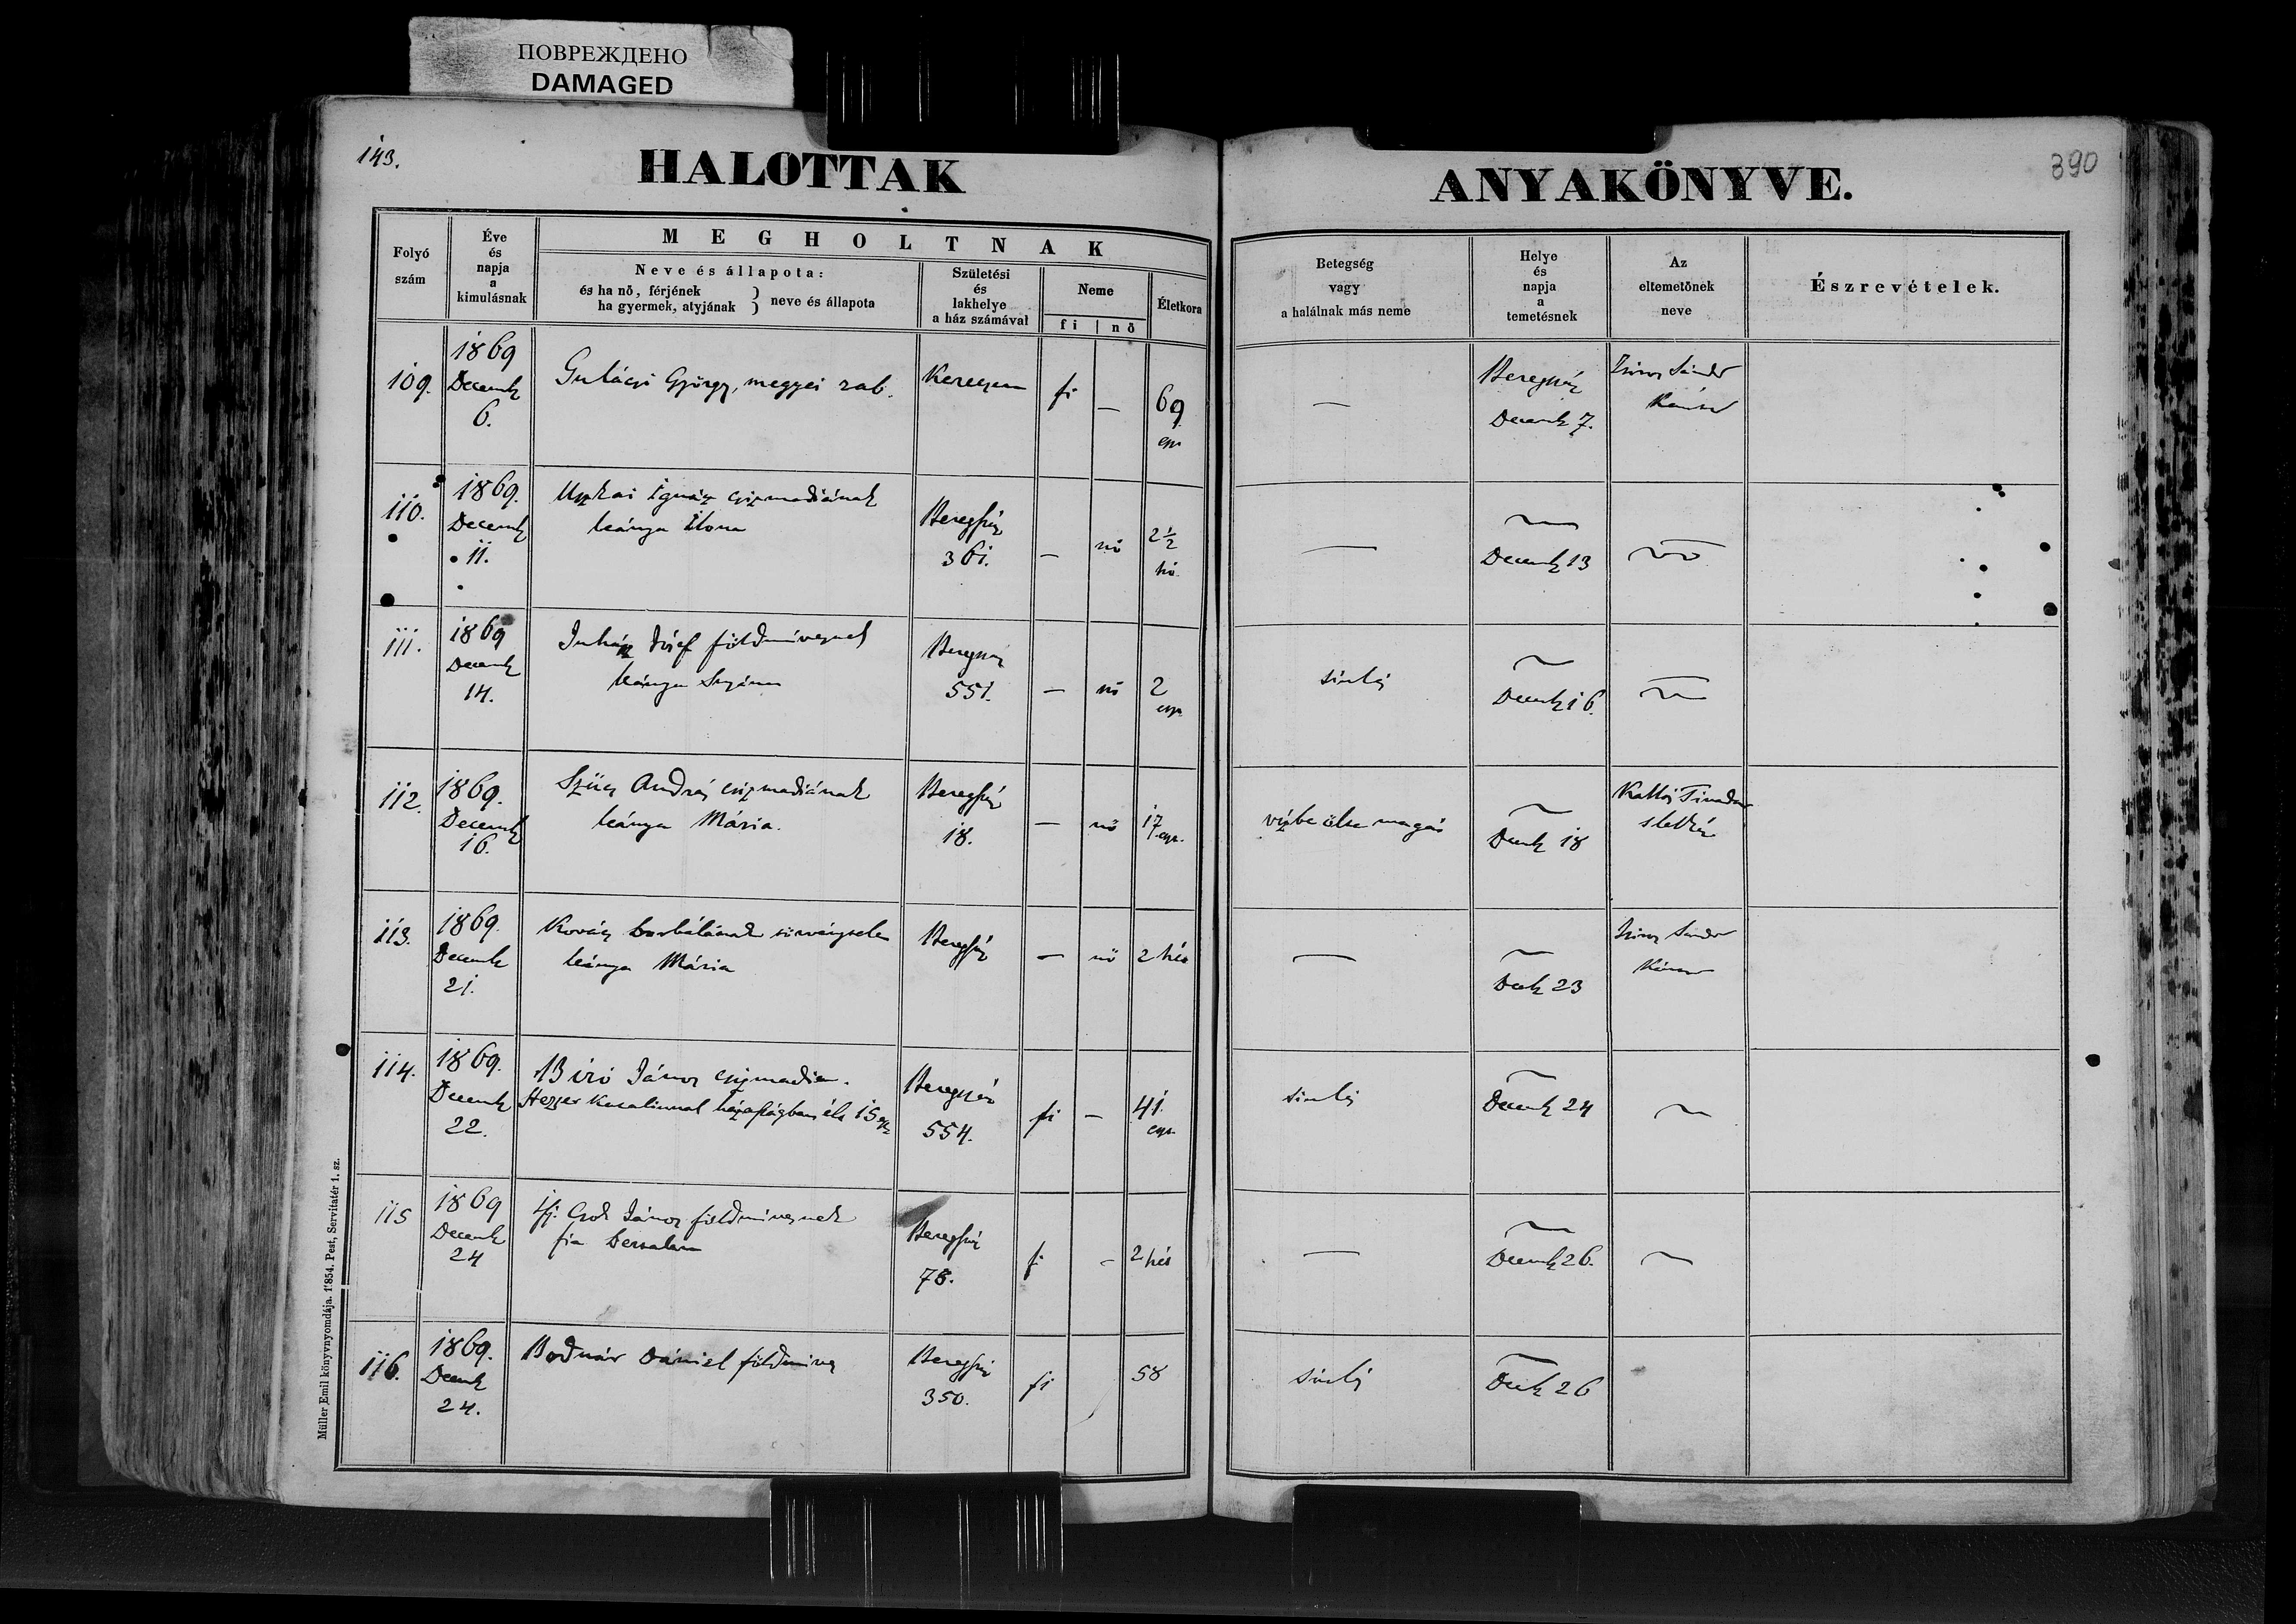 ПОВРЕЖДЕНО
DAMAGED
143.
HALOTTAK
ANYAKÖNYVE.
390
Folyó
szám
Éve
és
napja
a
kimulásnak
MEGHOLTNAK
Neve és állapota:
és ha nő, férjének
ha gyermek, atyjának
} neve és állapota
Születési
és
lakhelye
a ház számával
Neme
fi | nő
Életkora
Betegség
vagy
a halálnak más neme
Helye
és
napja
a
temetésnek
Az
eltemetőnek
neve
Észrevételek.
109.
1869
Decemb
6.
Gulácsi György, megyei rab.
fi
—
69
—
Beregszász
Decemb 7.
Sándor
110.
1869.
Decemb
11.
Uszkai Ignácz csizmadiának
leánya Ilona
Beregszász
361.
—
nő
2½
hó
—
Decemb 13
111.
1869
Decemb
14.
Juhász József földmivesnek
leánya Susánna
Beregszász
551.
—
nő
2
—
Decemb 16.
112.
1869.
Decemb
16.
Szűcs András csizmadiának
leánya Mária.
Beregszász
18.
—
nő
17
vízbe ölte magát
Decemb 18
113.
1869.
Decemb
21.
Kovács Borbálának törvénytelen
leánya Mária
Beregszász
—
nő
2 hét
—
Decb 23
Sándor
114.
1869.
Decemb
22.
Biró János csizmadia.
Katalinnal házasságban élt 15
Beregszász
554.
fi
—
41.
Decemb 24
115
1869
Decemb
24
Ifj. János földmivesnek
fia Bertalan
Beregszász
78.
fi
-
2 hét
—
Decemb 26.
116.
1869.
Decemb
24.
Bodnár Dániel földmives
Beregszász
350.
fi
58
Decb 26
Müller Emil könyvnyomdája. 1854. Pest, Servitatér 1. sz.